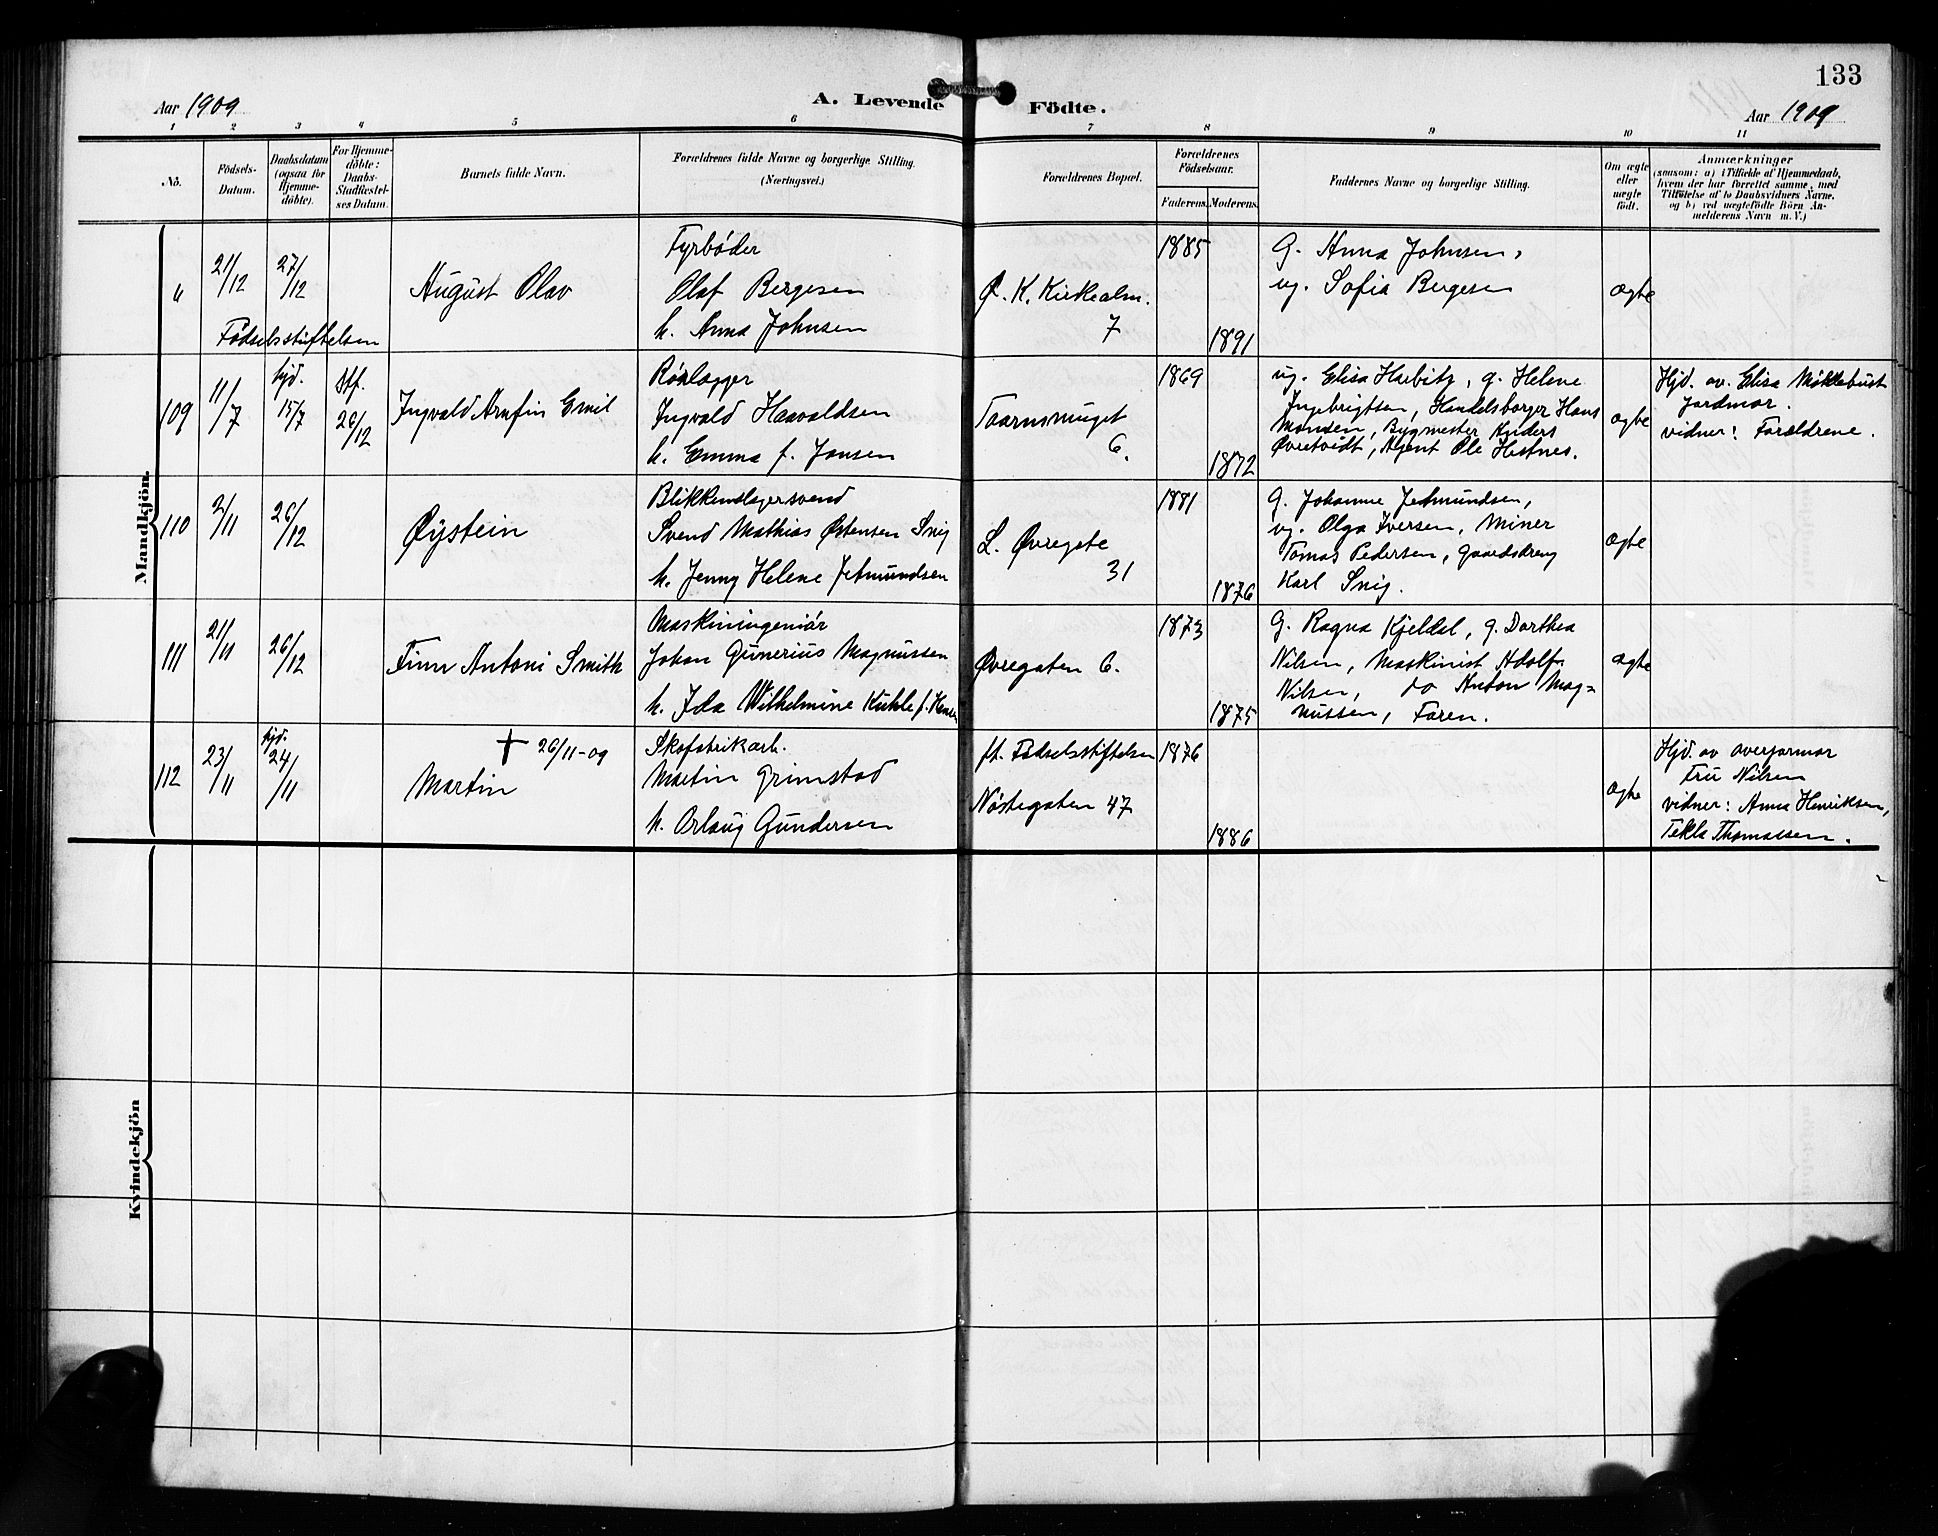 133
Aar 1909
A. Levende Födte.
Aar 1909
1 2 3 4 5 6 7 8 9 10 11
No.
Födsels-
Datum.
Daabsdatum
(ogsaa for
Hjemme-
döbte).
For Hjemme-
döbte:
Daabs-
Stadfæstel-
ses Datum.
Barnets fulde Navn.
Forældrenes fulde Navne og borgerlige Stilling.
(Næringsvei.)
Forældrenes Bopæl.
Forældrenes
Födselsaar.
Faderens.
Moderens.
Faddernes Navne og borgerlige Stilling.
Om ægte
eller
uægte
födt.
Anmærkninger
(saasom: a) i Tilfælde af Hjemmedaab,
hvem der har forrettet samme, med
Tilföielse af to Daabsvidners Navne,
og b) ved uægtefödte Börn An-
melderens Navn m. V.)
Mandkjön.
21/12
27/12
Fødselsstiftelsen
August Olav
Fyrbøder
Olaf Bergesen
h. Anna Johnsen
Ø. K. Kirkealm.
7
1885
1891
G. Anna Johnsen,
ug. Sofia Bergesen
ægte
109
11/7
hjd.
15/7
Stf.
26/12
Ingvald Arnfin Emil
Rørlægger
Ingvald Haavaldsen
h. Emma f. Jansen
Taarnsmuget
6.
1869
1872
ug. Elisa Harbitz, g. Helene
Ingebrigtsen, Handelsborger Hans
Monsen, Bygmester Anders
Øvretvidt, Agent Ole Hestnes.
ægte
Hjd. av. Elisa Møklebust
Jordmor.
vidner: Forældrene.
110
2/11
26/12
Øystein
Blikkenslagersvend
Svend Mathias Østensen Snig
h. Jenny Helene Jetmundsen
L. Øvregate
31
1881
1876
G. Johanne Jetmundsen,
ug. Olga Iversen, Miner
Tomas Pedersen, gaardsdreng
Karl Snig.
ægte
111
21/11
26/12
Finn Antoni Smith
Maskiningeniør
Johan Gunerius Magnussen
h. Ida Wilhelmine Kuhle f.
Øvregaten 6.
1873
1875
G. Ragna Kjeldal, g. Dorthea
Nilsen, Maskinist Adolf
Nilsen, do Anton Mag=
nussen, Faren.
ægte
112
23/11
hjd.
24/11
† 26/11-09
Martin
Skofabrikarb.
Martin Grimstad
h. Orlaug Gundersen
pt. Fødselsstiftelsen
Nøstegaten 47
1876
1886
ægte
Hjd. av overjormor
Fru Nilsen
vidner: Anna Henriksen,
Tekla Thomassen.
Kvindekjön